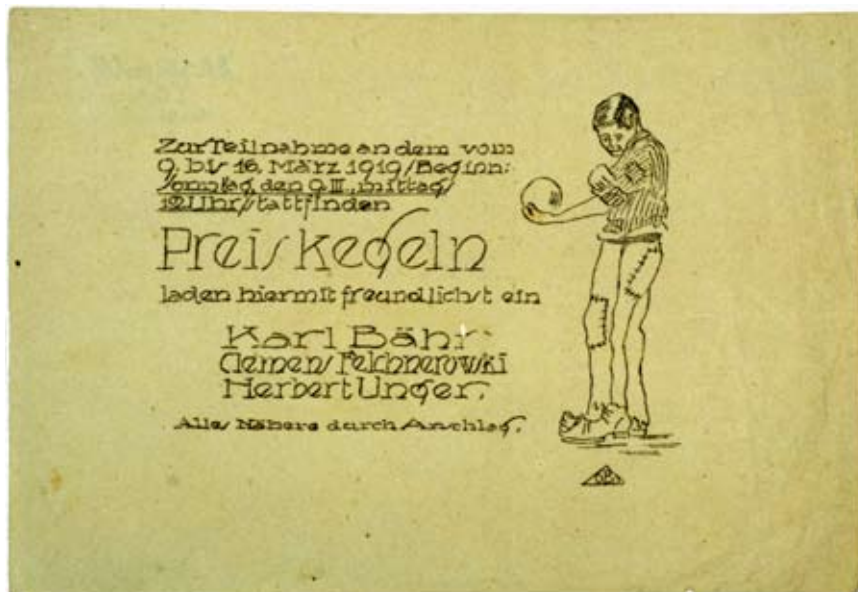 Zur Teilnahme an dem vom
9. bis 16. März 1919/Beginn:
Sonntag, den 9.III., mittags
12 Uhr/stattfinden
Preiskegeln
laden hiermit freundlichst ein
Karl Bähr
Clemens Felchnerowski
Herbert Unger.
Alles Nähere durch Anschlag.